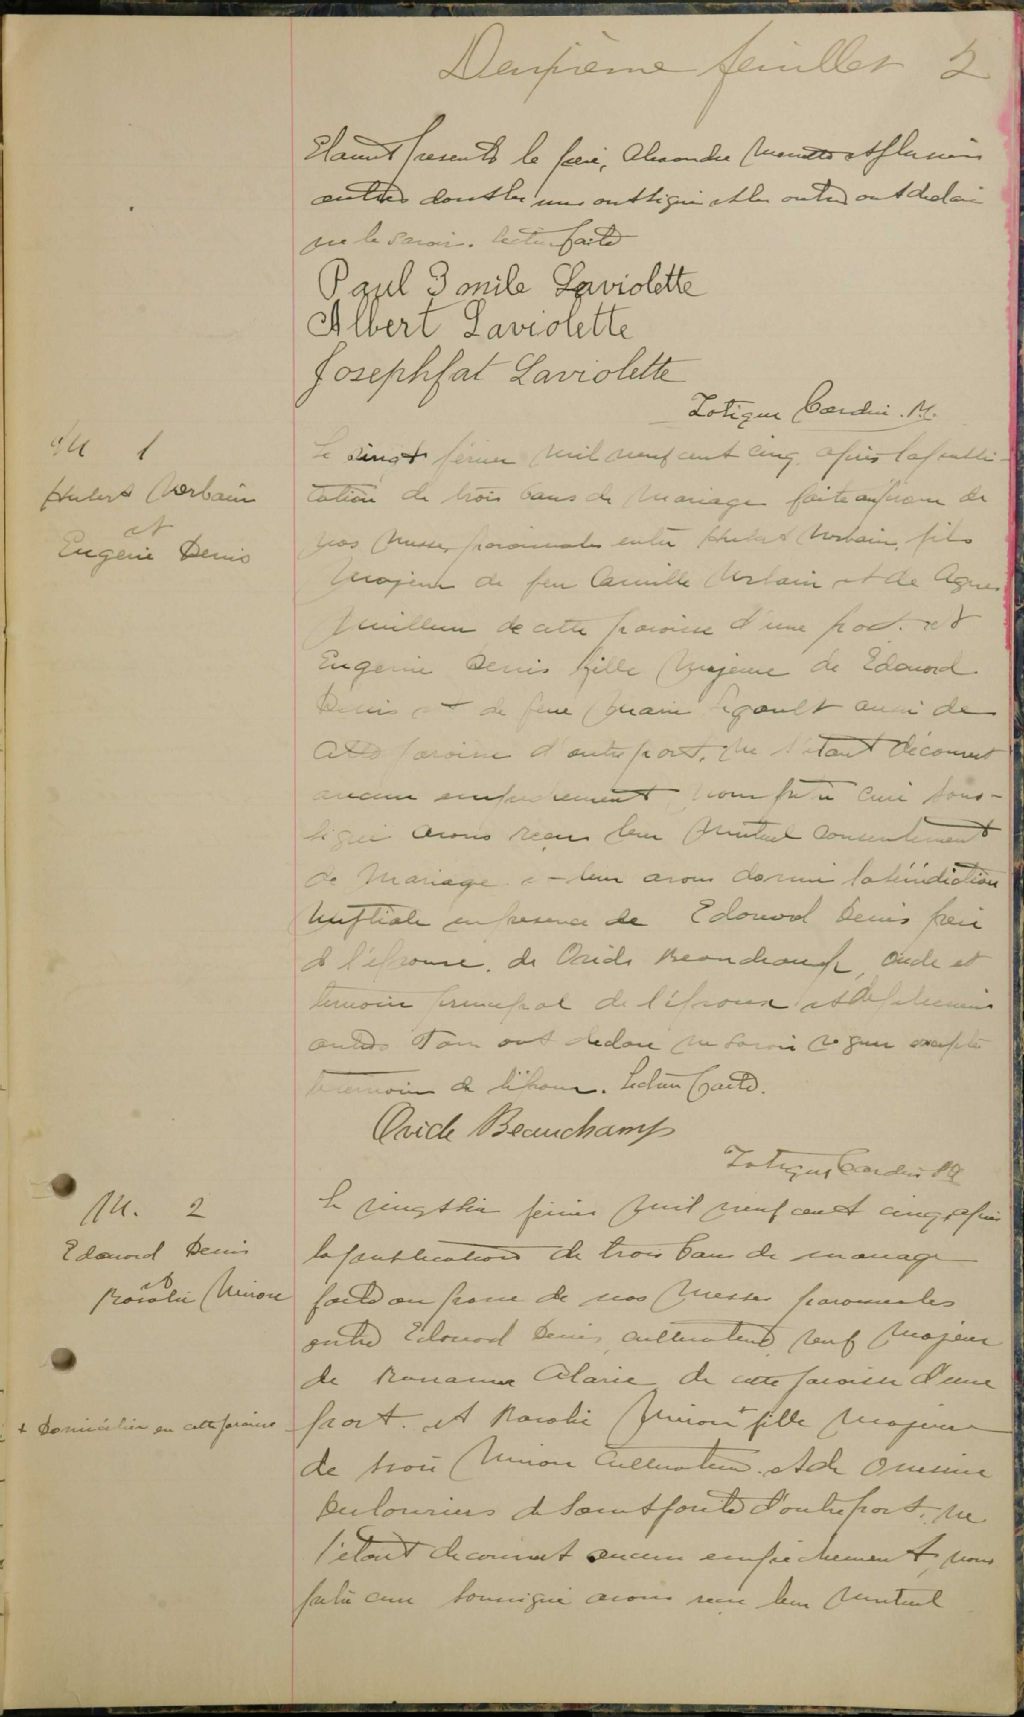 Deuxième feuillet 2
Etaient presents le père, Alexandre et plusieurs
autres dont les uns ont signé et les autres ont declaré
ne le savoir. Lecture faite
Paul Emile Laviolette
Albert Laviolette
Josephfat Laviolette
Zotique Cardin. M.
M 1
Hubert Morbain
et
Eugénie Denis
Le vingt février mil neuf cent cinq, après la publi-
cation de trois bans de mariage faite au prone de
nos messes paroissiales entre Hubert Morbain, fils
Majeur de feu Camille Morbain et de Agnes
de cette paroisse d'une part. et
Eugenie Denis fille Majeure de Edouard
Denis et de feue Marie Legault aussi de
cette paroisse d'autre part. Ne s'étant découvert
aucun empechement, nous prêtre curé sous-
signé avons reçu leur mutuel consentement
de mariage et leur avons donné la bénédiction
nuptiale en presence de Edouard Denis père
de l'épouse, de Ovide Beauchamp, oncle et
temoin principal de l'époux et de plusieurs
autres Tous ont declaré ne savoir signer excepté
le temoin de l'époux. Lecture faite.
Ovide Beauchamp
Zotique Cardin
M. 2
Edouard Denis
et
Rosalie Minon
+ Domiciliée en cette paroisse
Le vingt février mil neuf cent cinq, après
la publication de trois bans de mariage
faite au prone de nos Messes paroissiales
entre Edouard Denis, cultivateur, veuf majeur
de Rosanna Alarie de cette paroisse d'une
part. et Rosalie Minon + fille Majeure
de Minon cultivateur et de Onesime
Deslauriers de d'autre part. Ne
s'étant decouvert aucun empêchement, nous
prêtre curé soussigné avons reçu leur mutuel